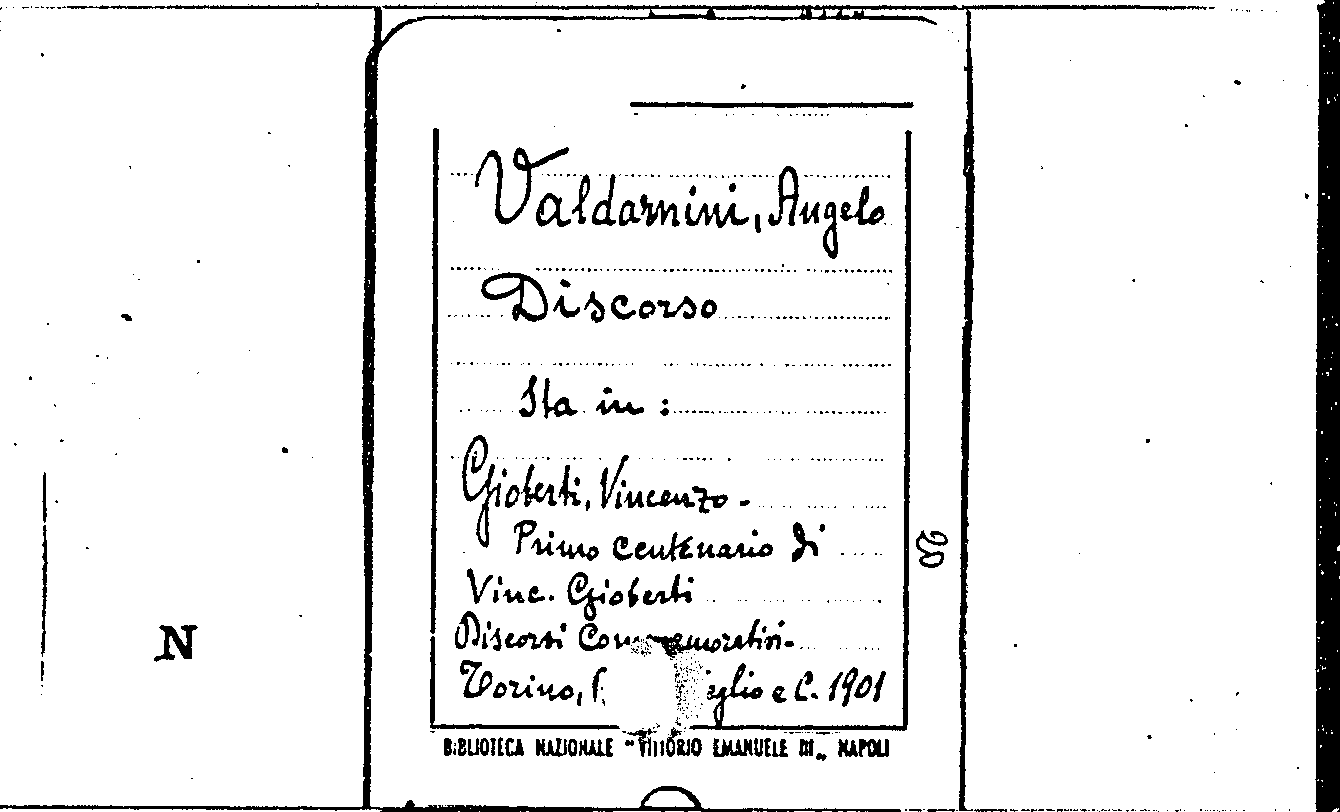 Valdarnini, Angelo
Discorso
Sta in :
Gioberti, Vincenzo -
Primo centenario di
Vinc. Gioberti
Discorsi Commemorativi -
Torino, e C. 1901
BIBLIOTECA NAZIONALE "VITTORIO EMANUELE III" NAPOLI
N